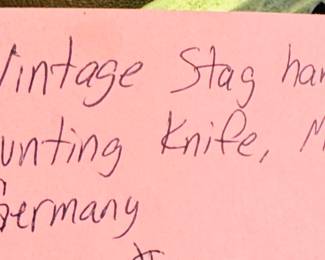 Vintage Stag han
unting Knife, M
Germany